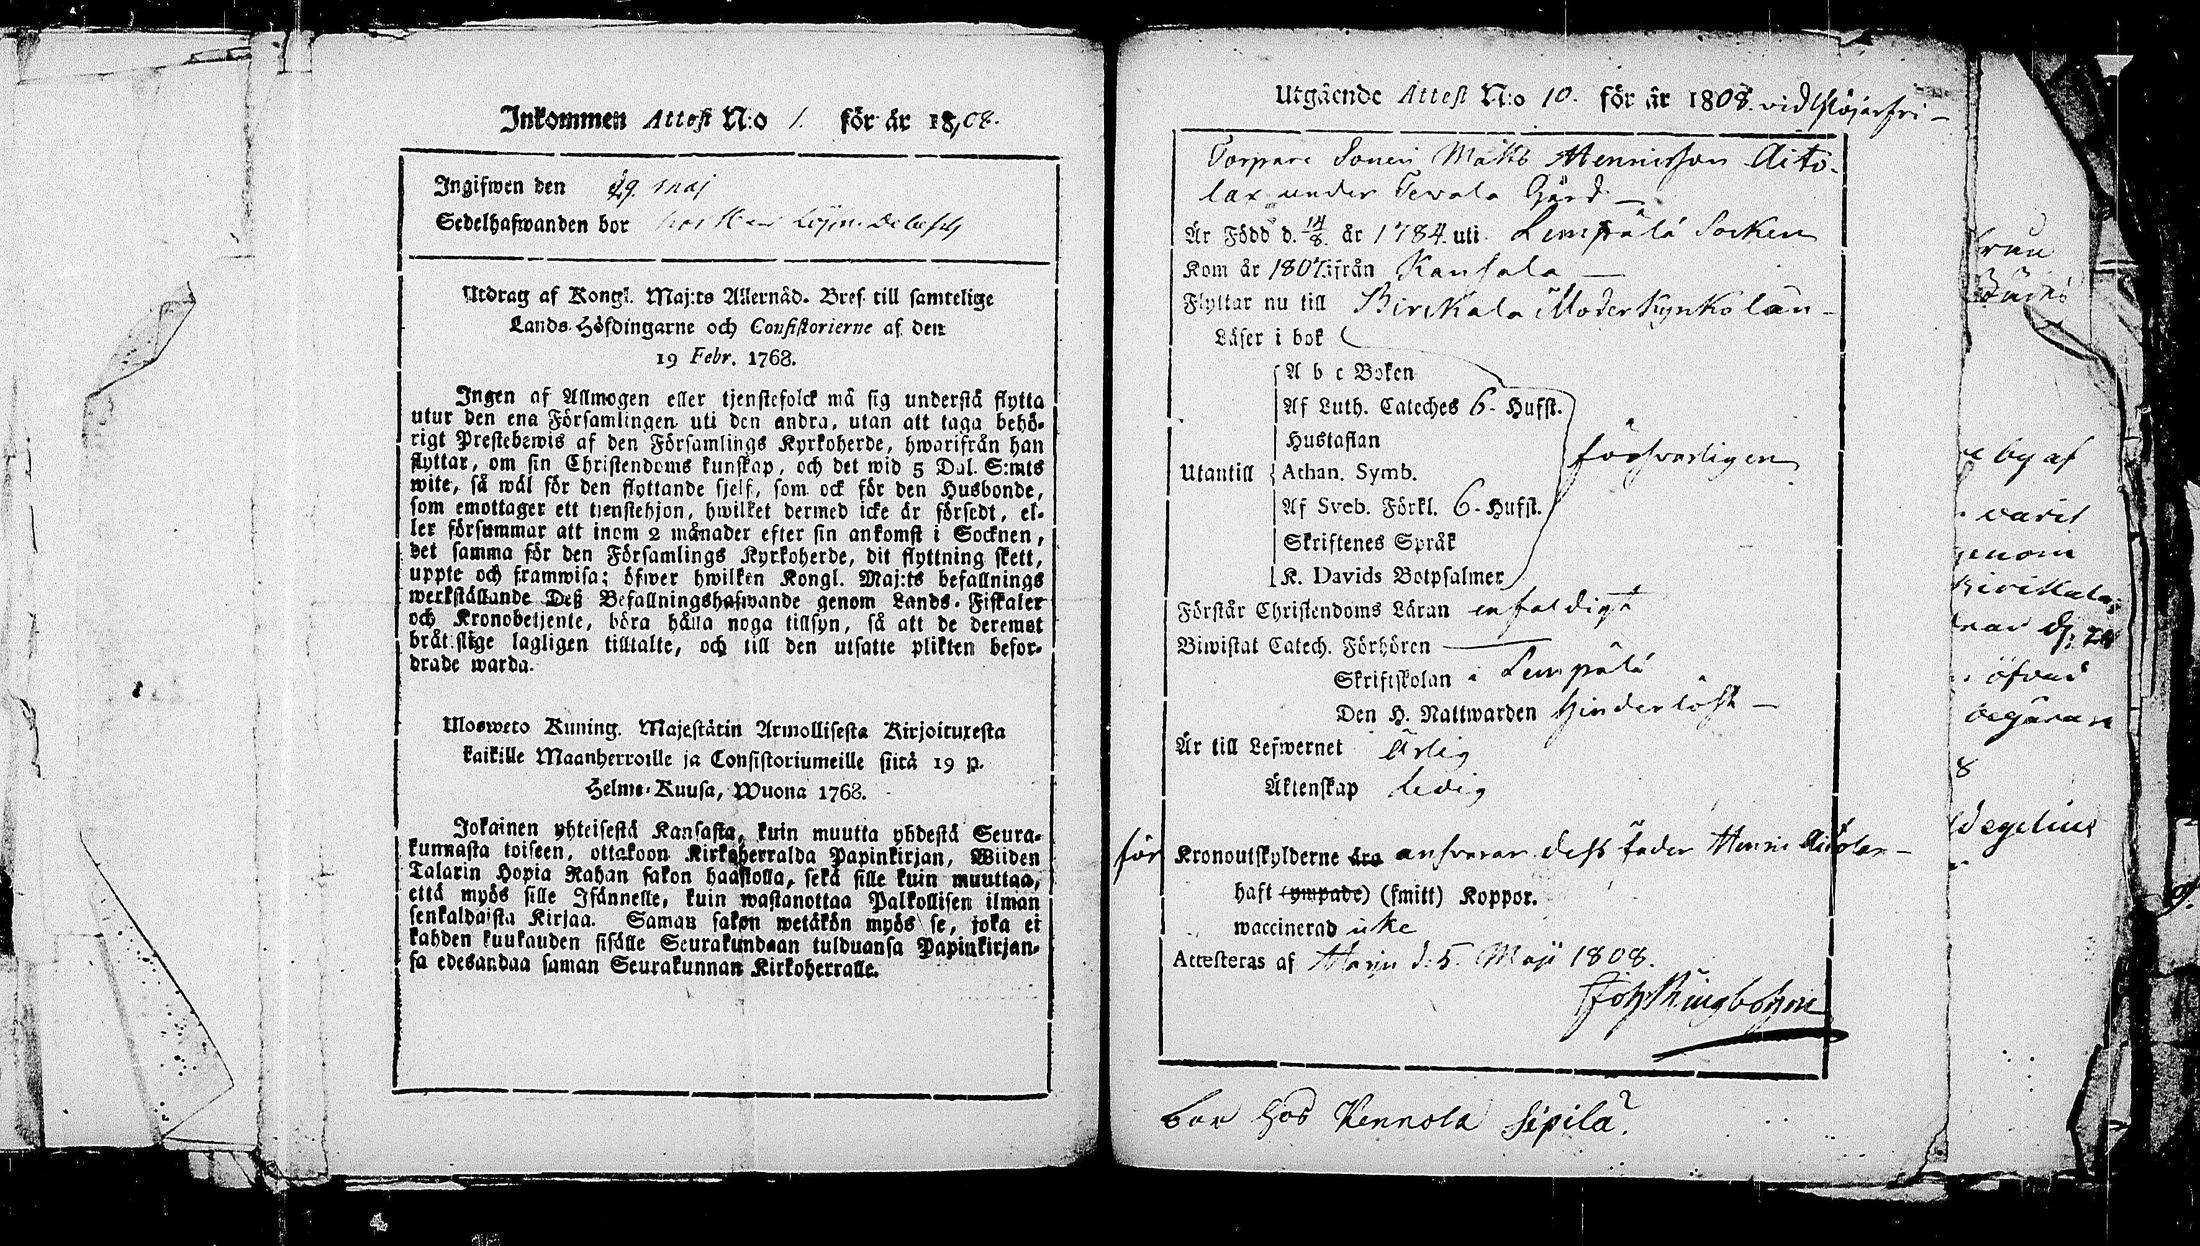 Inkommen Attest N:o 1. för år 18,08.
Ingifwen den 29. maj
Sedelhafwanden bor hos
Utdrag af Kongl. Maj:ts Allernåd. Bref till samtelige
Lands-Höfdingarne och Consistorierne af den
19 Febr. 1768.
Ingen af Allmogen eller tjenstefolck må sig understå flytta
utur den ena Församlingen uti den andra, utan att taga behö-
rigt Prestebewis af den Församlings Kyrkoherde, hwarifrån han
flyttar, om sin Christendoms kunskap, och det wid 5 Dal. S:mts
wite, så wäl för den flyttande sjelf, som ock för den Husbonde,
som emottager ett tjenstehjon, hwilket dermed icke är försedt, el-
ler försummar att inom 2 månader efter sin ankomst i Socknen,
det samma för den Församlings Kyrkoherde, dit flyttning skett,
uppte och framwisa; öfwer hwilken Kongl. Maj:ts befallnings
werkställande Deß Befallningshafwande genom Lands-Fiskaler
och Kronobetjente, böra hålla noga tillsyn, så att de deremot
bråtslige lagligen tilltalte, och till den utsatte plikten befor-
drade warda.
Ulosweto Kuning. Majestätin Armollisesta Kirjoituxesta
kaikille Maanherroille ja Consistoriumeille siitä 19 p.
Helme-Kuusa, Wuona 1768.
Jokainen yhteisestä Kansasta, kuin muutta yhdestä Seura-
kunnasta toiseen, ottakoon Kirkoherralda Papinkirjan, Wiiden
Talarin Hopia Rahan sakon haastolla, sekä sille kuin muuttaa,
että myös sille Isännelle, kuin wastanottaa Palkollisen ilman
senkaldaista Kirjaa. Saman sakon wetäkön myös se, joka ei
kahden kuukauden sisälle Seurakundaan tulduansa Papinkirjan-
sa edesandaa saman Seurakunnan Kirkoherralle.
Utgående Attest N:o 10. för år 1808. vid
Torpare Sonen Matts Hennricsson Aito-
lax under Tevala Gård
Är Född d. 14/8. år 1784. uti Lempälä Socken
Kom år 1807. ifrån Kansala
Flyttar nu till Birckala Moderkyrko
Läser i bok
A b c Boken
Af Luth. Cateches 6- Hufst.
Hustaflan
Utantill Athan. Symb. försvarligen
Af Sveb. Förkl. 6- Hufst.
Skriftenes Språk
K. Davids Botpsalmer
Förstår Christendoms Läran enfaldigt
Biwistat Catech. Förhören
Skriftskolan i Lempälä
Den H. Nattwarden Hinderlöst
Är till Lefwernet Ärlig
Äktenskap ledig
för Kronoutskylderne åra ansvarar dess Fader Henric Aitolax
haft (ympade) (smitt) Koppor.
waccinerad icke
Attesteras af Harju d: 5. Maji 1808.
Joh Ringbohm
bor hos Kennola Sipilä
frun
by af
varit
genom
öfvad
8